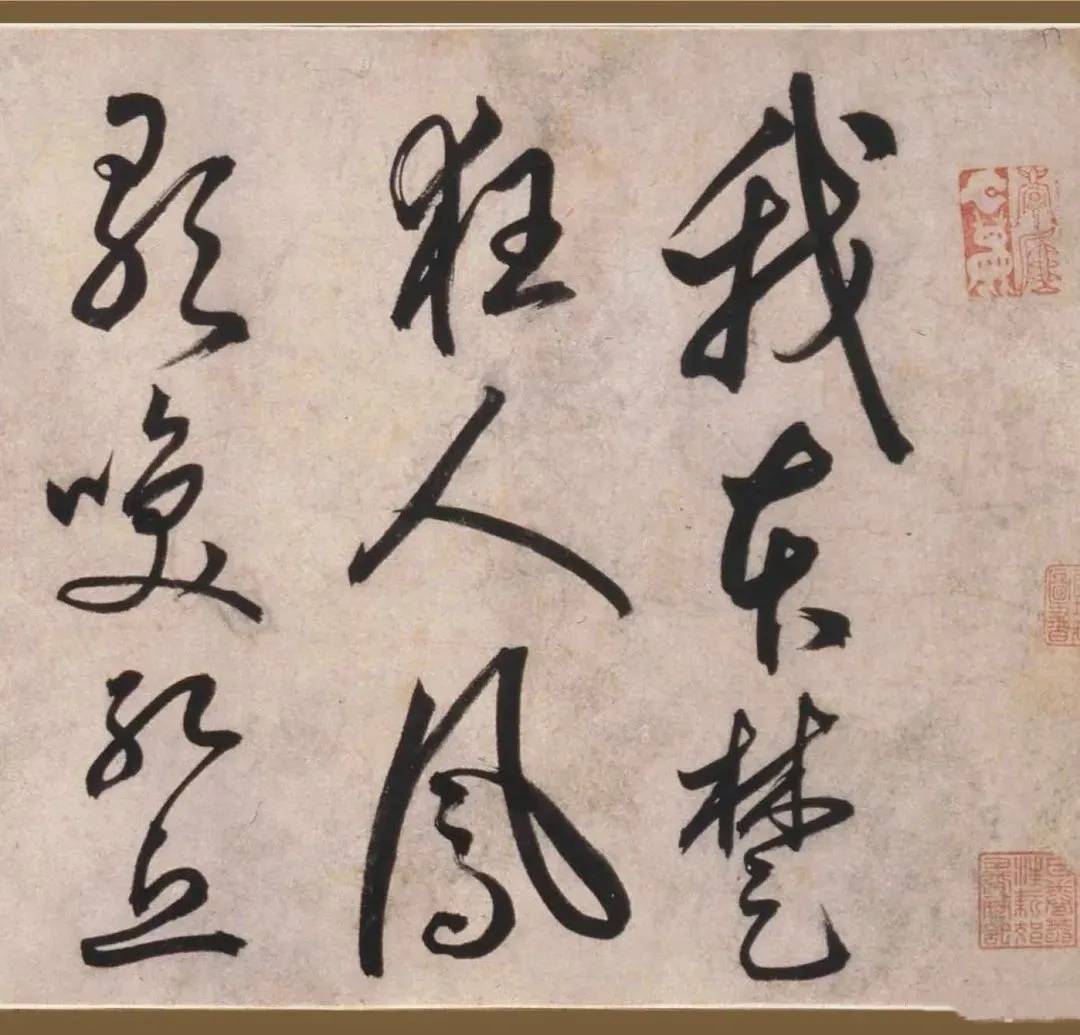 我本楚
狂人鳳
歌喚孔丘